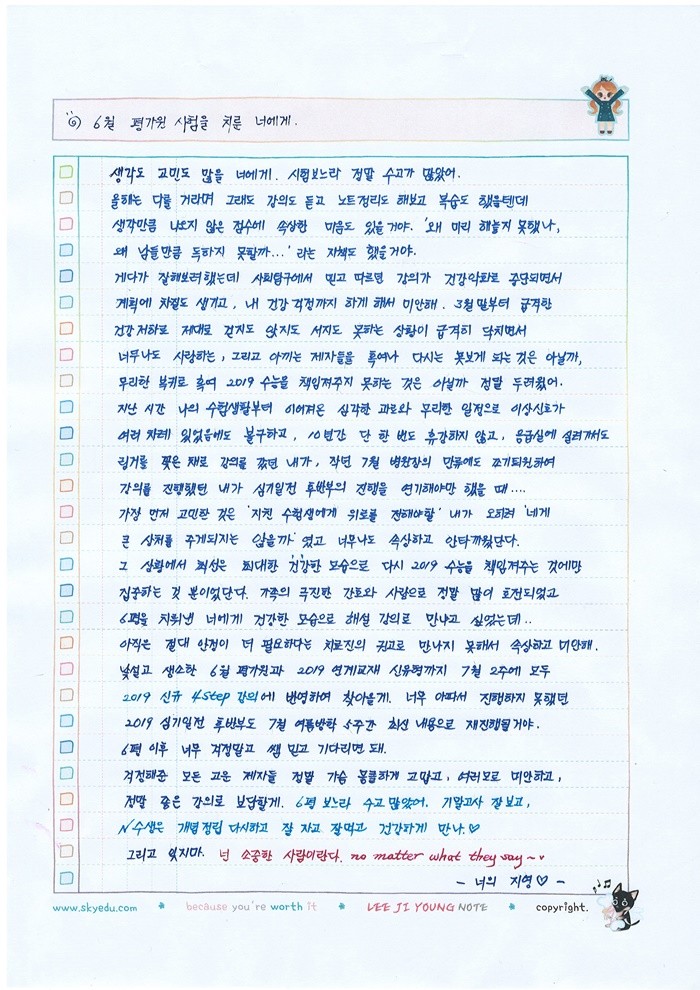 6월 평가원 시험을 치룬 너에게.
생각도 고민도 많을 너에게. 시험보느라 정말 수고가 많았어.
올해는 다를 거라며 그래도 강의도 듣고 노트정리도 해보고 복습도 했을텐데
생각만큼 나오지 않은 점수에 속상한 마음도 있을거야. '왜 미리 해놓지 못했나,
왜 남들만큼 독하지 못할까...' 라는 자책도 했을거야.
게다가 잘해보려했는데 사회탐구에서 믿고 따르던 강의가 건강악화로 중단되면서
계획에 차질도 생기고, 내 건강 걱정까지 하게 해서 미안해. 3월 말부터 급격한
건강저하로 제대로 걷지도 앉지도 서지도 못하는 상황이 급격히 닥치면서
너무나도 사랑하는, 그리고 아끼는 제자들을 혹여나 다시는 못보게 되는 것은 아닐까,
무리한 복귀로 혹여 2019 수능을 책임져주지 못하는 것은 아닐까 정말 두려웠어.
지난 시간 나의 수험생활부터 이어져온 심각한 과로와 무리한 일정으로 이상신호가
여러 차례 있었음에도 불구하고, 10년간 단 한 번도 휴강하지 않고, 응급실에 실려가서도
링거를 꽂은 채로 강의를 갔던 내가, 작년 7월 병원장의 만류에도 조기퇴원하여
강의를 진행했던 내가 심기일전 후반부의 진행을 연기해야만 했을 때....
가장 먼저 고민한 것은 '지친 수험생에게 위로를 전해야할' 내가 오히려 '네게
큰 상처를 주게되지는 않을까' 였고 너무나도 속상하고 안타까웠단다.
그 상황에서 최선은 최대한 '건강한 모습으로 다시 2019 수능을 책임져주는 것'에만
집중하는 것 뿐이었단다. 가족의 극진한 간호와 사랑으로 정말 많이 호전되었고
6평을 치뤄낸 너에게 건강한 모습으로 해설 강의로 만나고 싶었는데..
아직은 절대 안정이 더 필요하다는 치료진의 권고로 만나지 못해서 속상하고 미안해.
낯설고 생소한 6월 평가원과 2019 연계교재 신유형까지 7월 2주에 모두
2019 신규 4step 강의에 반영하여 찾아올게. 너무 아파서 진행하지 못했던
2019 심기일전 후반부도 7월 여름방학 5주간 최신 내용으로 재진행될거야.
6평 이후 너무 걱정말고 쌤 믿고 기다리면 돼.
걱정해준 모든 고운 제자들 정말 가슴 뭉클하게 고맙고, 여러모로 미안하고,
정말 좋은 강의로 보답할게. 6평 보느라 수고 많았어. 기말고사 잘 보고,
N수생은 개념정립 다시하고 잘 자고 잘먹고 건강하게 만나.♡
그리고 잊지마. 넌 소중한 사람이란다. no matter what they say~♥
- 너의 지영♡ -
www.skyedu.com * because you're worth it * LEE JI YOUNG NOTE * copyright.